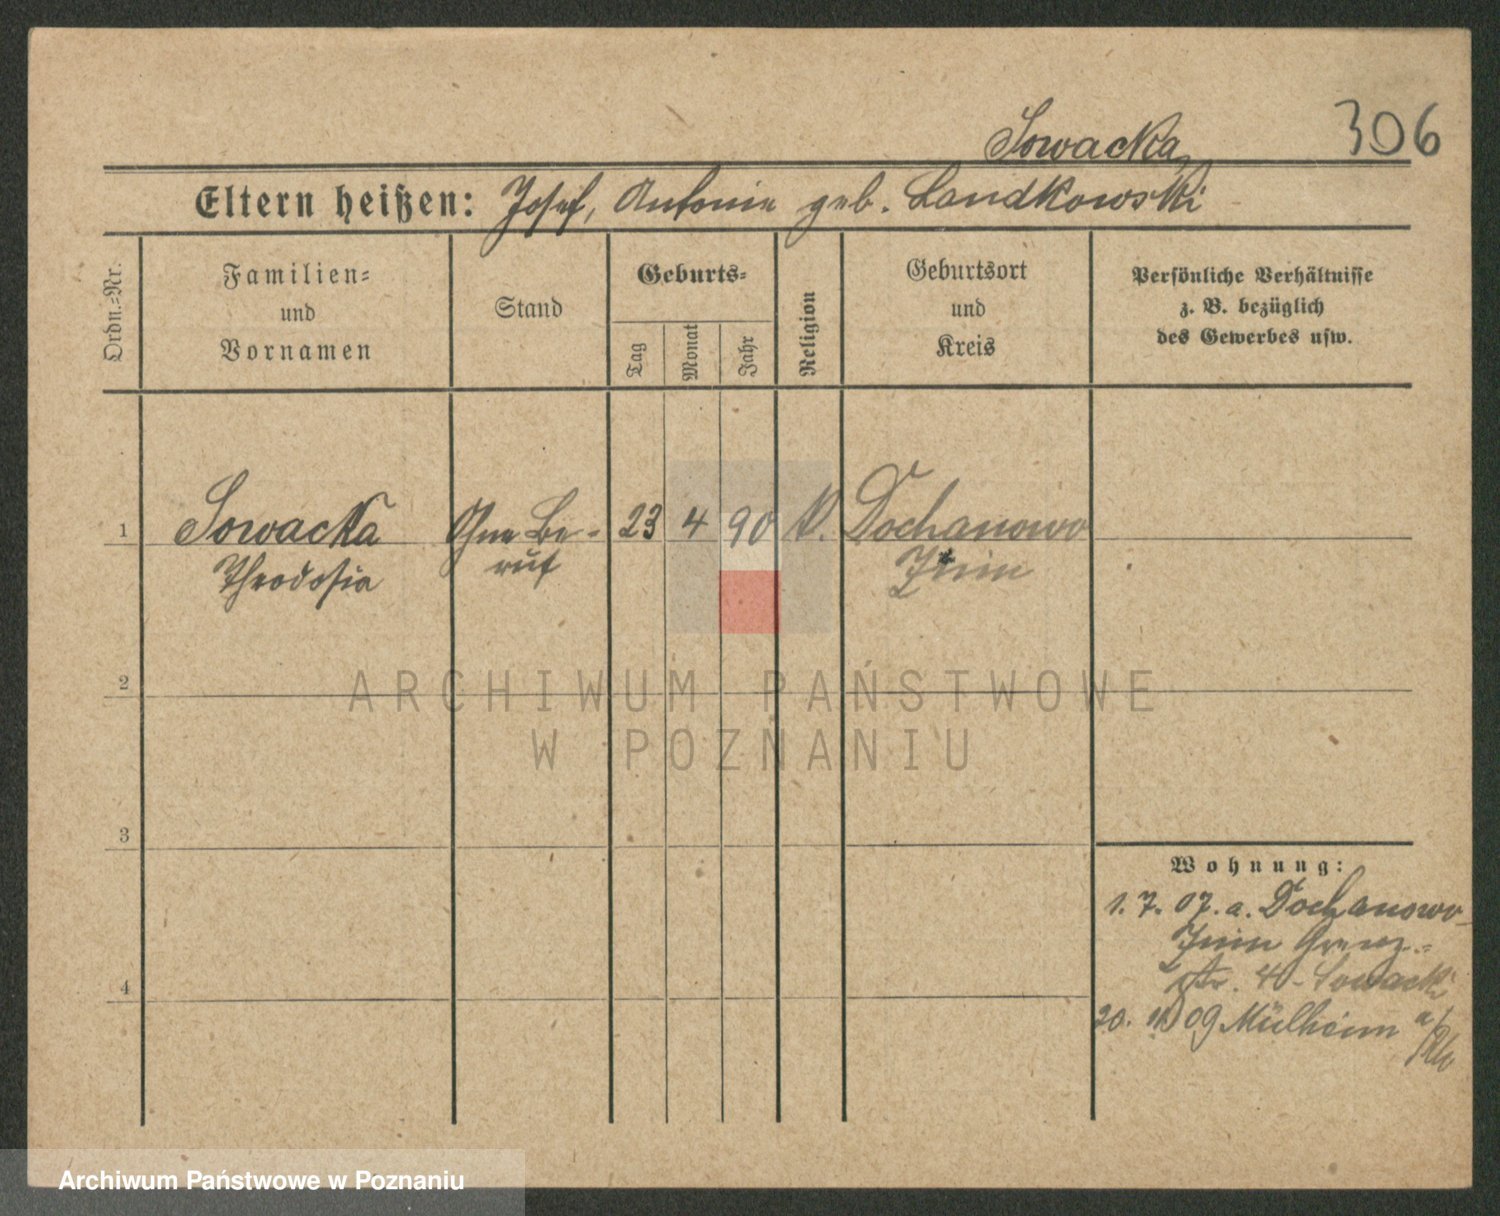 Sowacka
306
Eltern heißen: Josef, Antonie geb. Landkowski
Ordn.-Nr.
Familien-
und
Vornamen
Stand
Geburts-
Tag
Monat
Jahr
Religion
Geburtsort
und
Kreis
Persönliche Verhältnisse
z. B. bezüglich
des Gewerbes usw.
1 Sowacka Ohne Be- 23 4 90 K. Dochanowo
Theodosia ruf Znin
2
ARCHIWUM PAŃSTWOWE
W POZNANIU
3
Wohnung:
1. 7. 07. a. Dochanowo
Znin Grenz-
str. 4 Sowacki
4
20. 09 Mülheim a/Rh
Archiwum Państwowe w Poznaniu